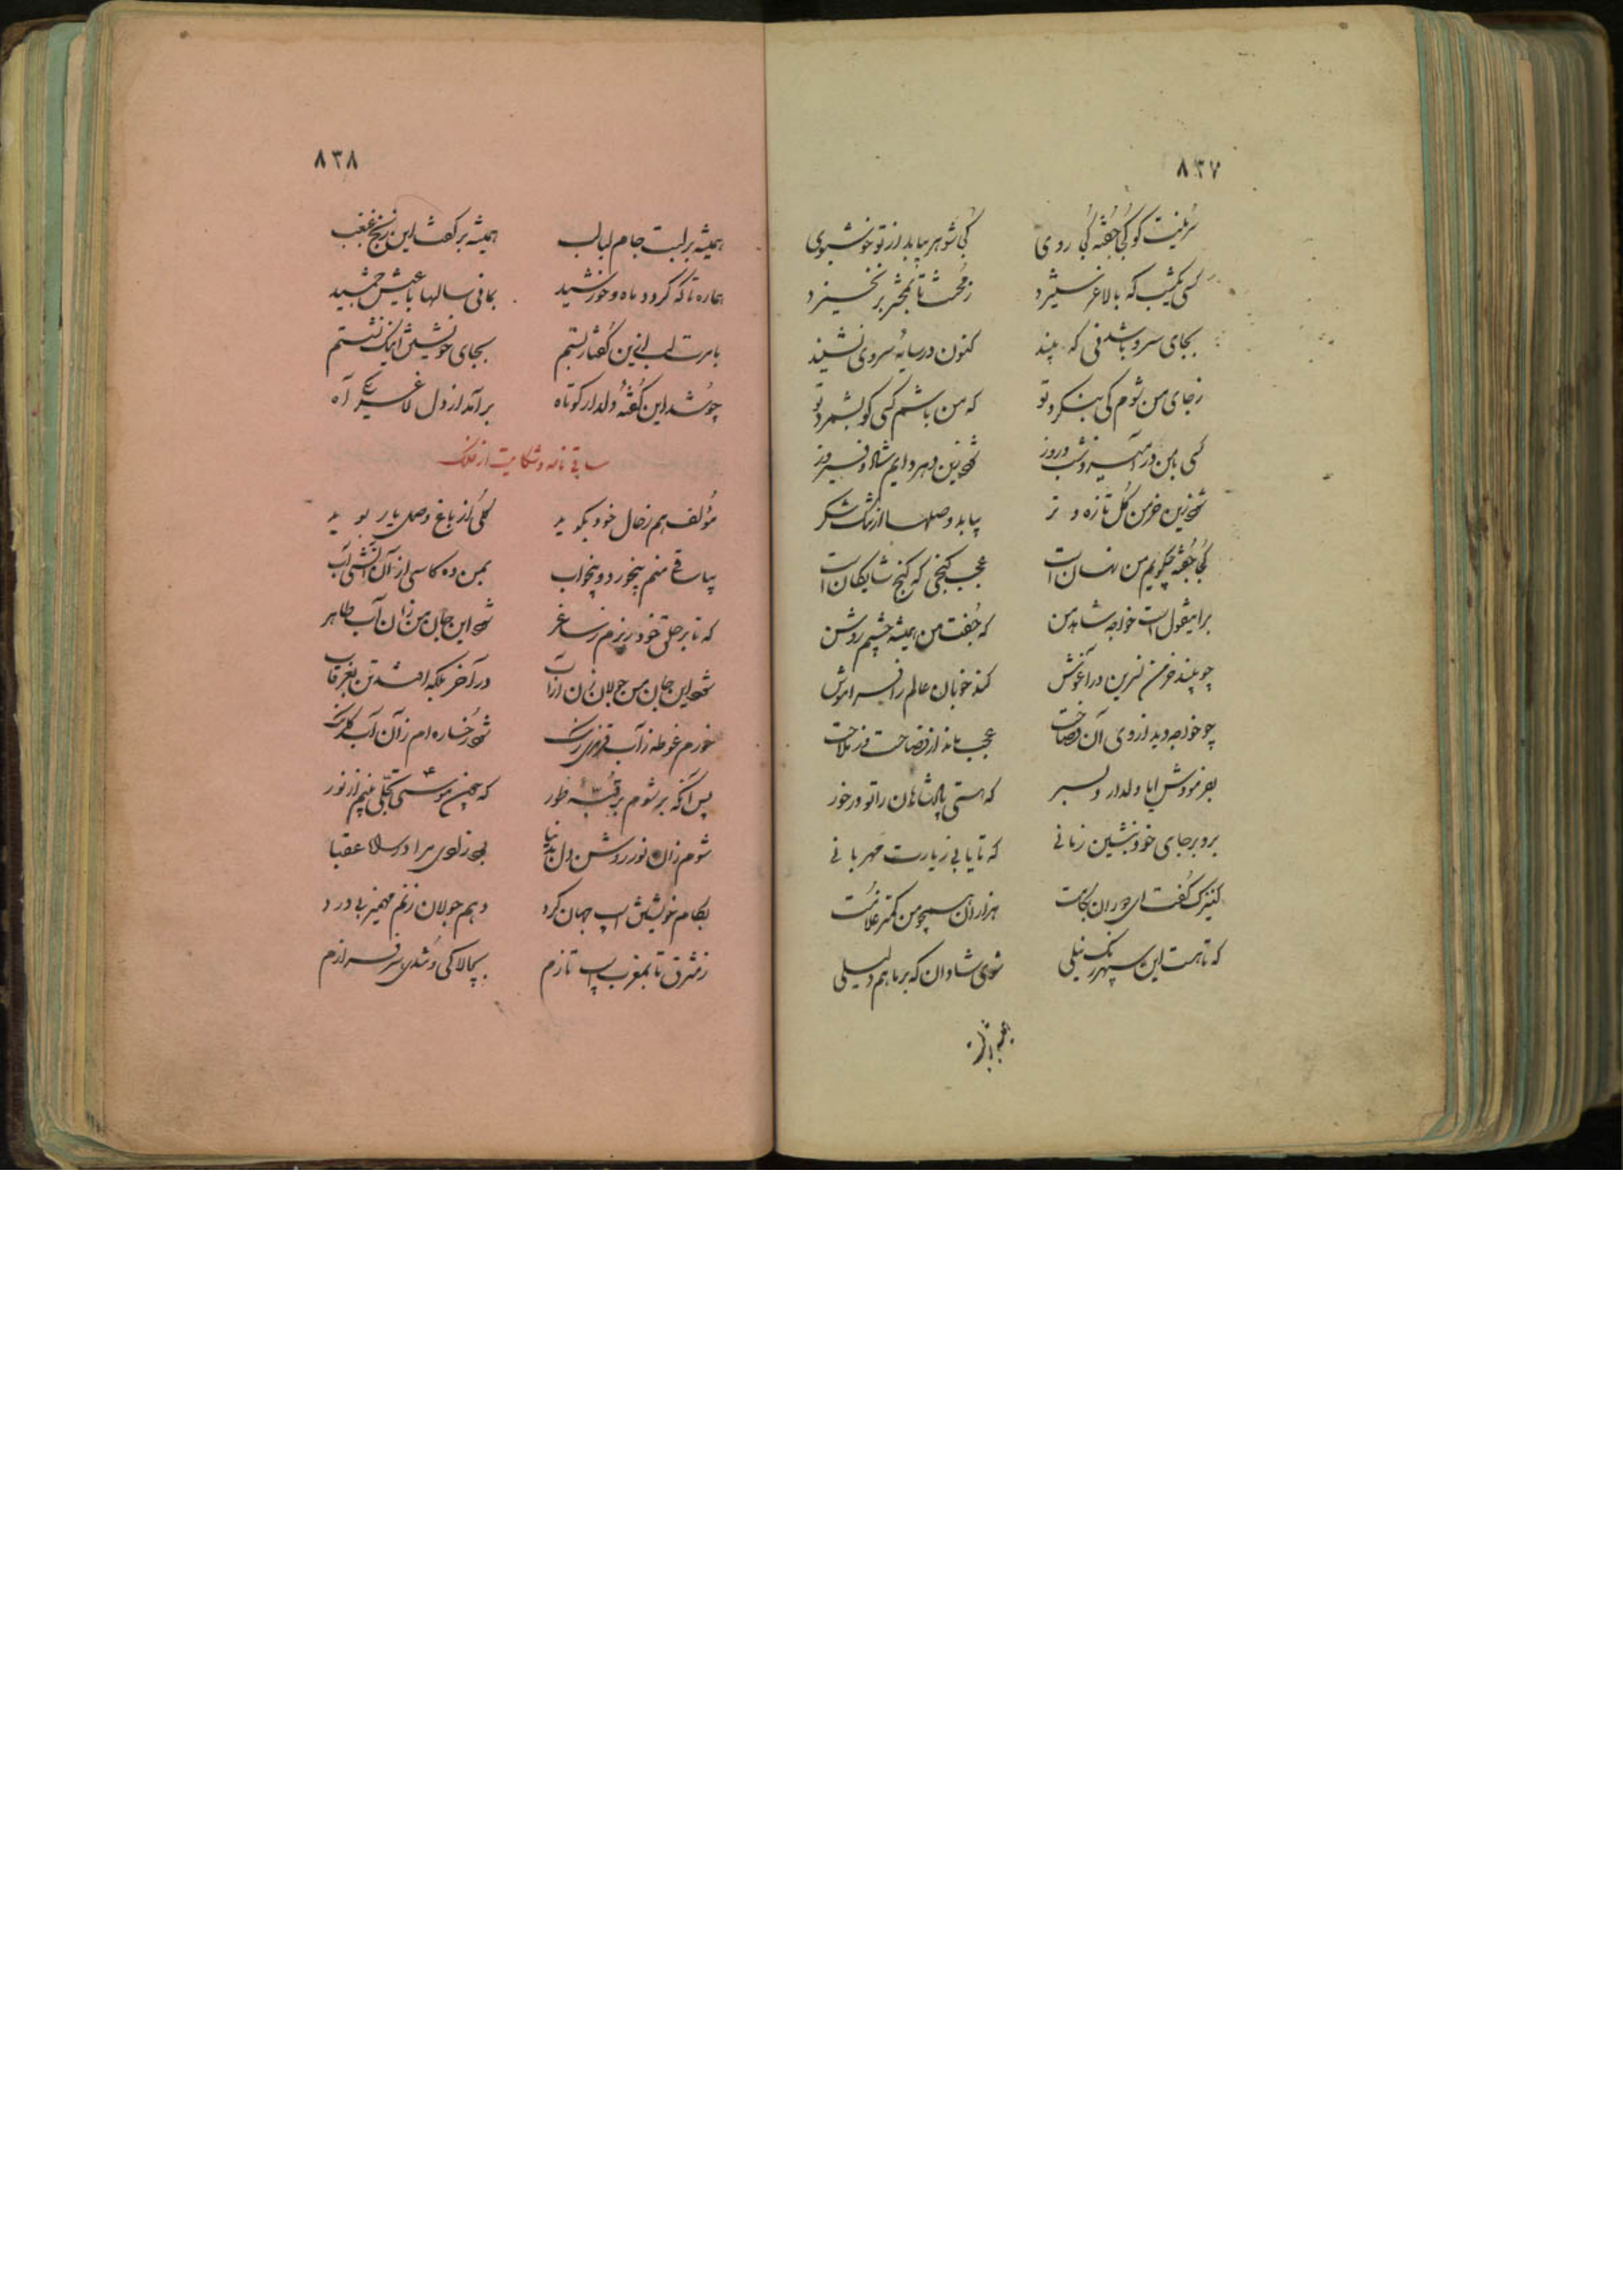 ٨٣٧
سُرینت کو کُجا جُفته کُجا روی کُجا شوهر بیابد از تو خوشبوی
کسی یکشب که با لاغر ستیزد ز محنت تا بمحشر بر نخیزد
بجای سرو باشد نی که بیند کنون در سایهٔ سروی نشیند
ز جای من شوم کی بنکرد تو که من باشم کسی کو بشمرد تو
کسی با من در آمیزد شب و روز شود زین دهر دایم شاد و فیروز
شود زین خرمن گل تازه و تر بیابد وصلها از تنگ شکر
کُجا جُفته چکویم من نهان است عجب کنجی که کنج شایکان است
برایقول است خواجه شاهد من که جُفت من همیشه چشم روشن
چو بیند خرمن نسرین در آغوش کند خوبان عالم را فراموش
چو خواجه دید از وی آن فصاحت عجب ماند از فصاحت وز ملاحت
بفرمودش ایا دلدار دلبر که هستی پادشاهان را تو در خور
برو بر جای خود بنشین زمانی که تا یابی زیارت مهربانی
کنیزک گفت ای دوران بکامت هزاران همچو من کمتر غلامت
که تا هست این سپهر رنک نیلی شوی شادان که بر ما هم دلیلی
همیشه بر لبت
٨٣٨
همیشه بر لبت جام لبالب همیشه بر کفت این زنخ غبغب
هماره تا که کردد ماه و خورشید بمانی سالها با عیش جمشید
بامرت لب ازین گفتار بستم بجای خویشتن اینک نشستم
چو شد این گفتهٔ دلدار کوتاه برآمد از دل لاغر یکی آه
ساقی نامه و شکایت از فلک
مؤلف هم ز حال خود بکوید کلی از باغ وصل یار بوید
بیا ساقی منم بیخورد و بیخواب بمن ده کاسی از آن آتشی آب
که تا بر حلق خود ریزم ز ساغر شود این جان من زان آب طاهر
شود این جان من جولان زن از آب در آخر بلکه افتد تن بغرقاب
خورم غوطه در آب قرمزی رنک شود رخساره ام زآن آب کلرنک
پس آنکه بر شوم بر قُبّهٔ طور که چون موسی تجلّی بینم از نور
شوم زان نور روشن دل بدنیا بود زادی مرا در راه عقبا
بکام خویش اسب جهان کرد دهم جولان زنم مهمیز بی درد
ز مشرق تا بمغرب اسب تازم بچالاکی و تندی سرفرازم